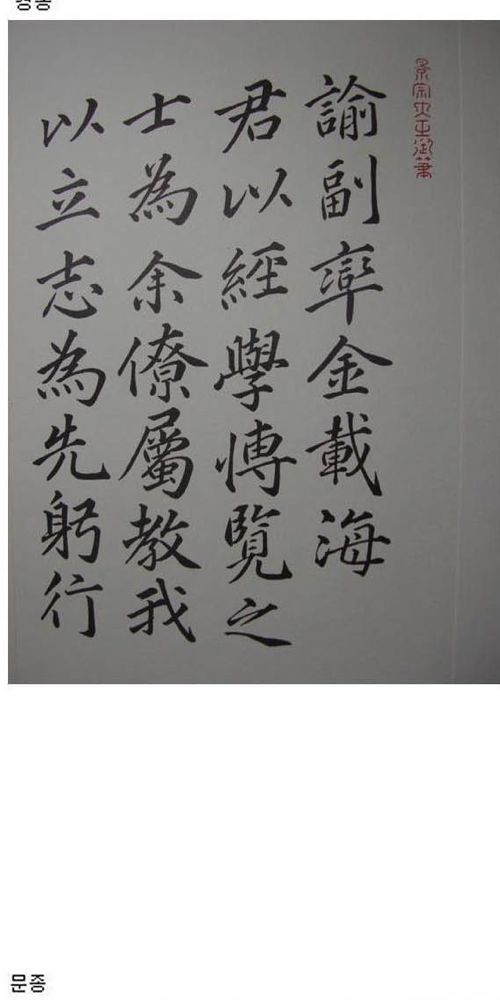 경종
景宗大王御筆
諭副率金載海
君以經學博覽之
士為余僚屬教我
以立志為先躬行
문종